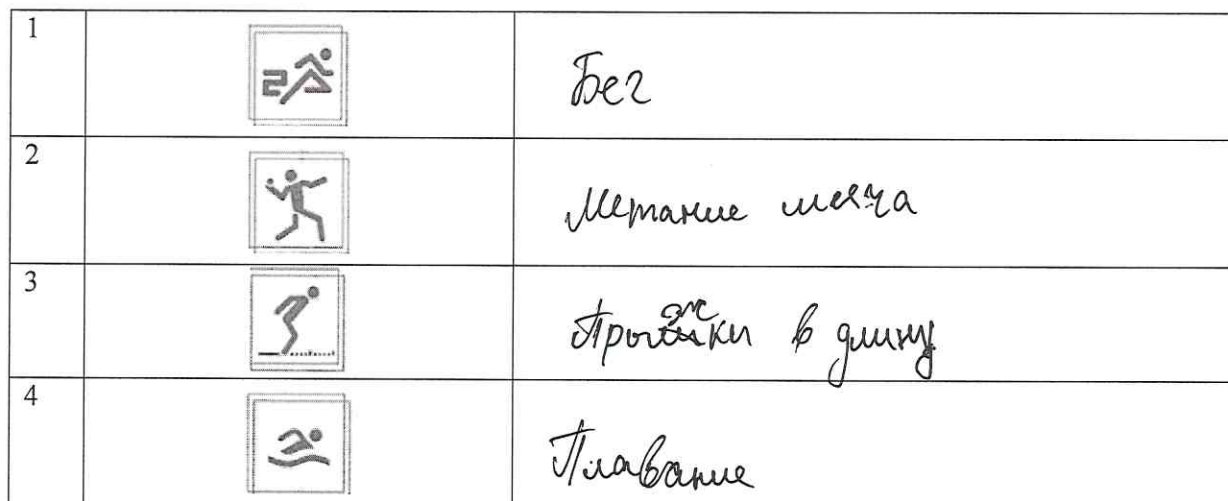 1
Бег
2
Метание мяча
3
Прыжки в длину
4
Плавание